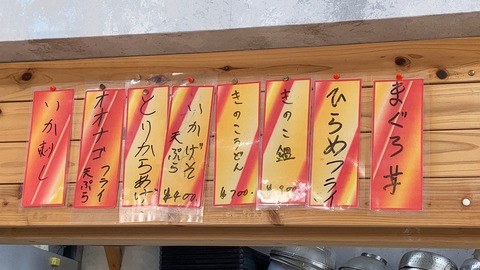 まぐろ丼
ひらめフライ
きのこ鍋
¥900
きのこうどん
¥700
いかげそ
天ぷら
¥400
とりからあげ
オオナゴフライ
天ぷら
いか刺し